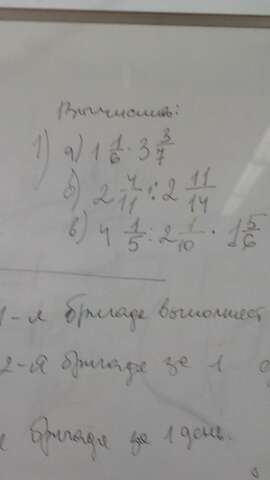 Вычислить:
1) а) 1 1/6 · 3 3/7
б) 2 4/11 : 2 11/14
в) 4 1/5 : 2 1/10 · 1 5/6
1-я бригада выполняет
2-я бригада за 1
бригада за 1 день.